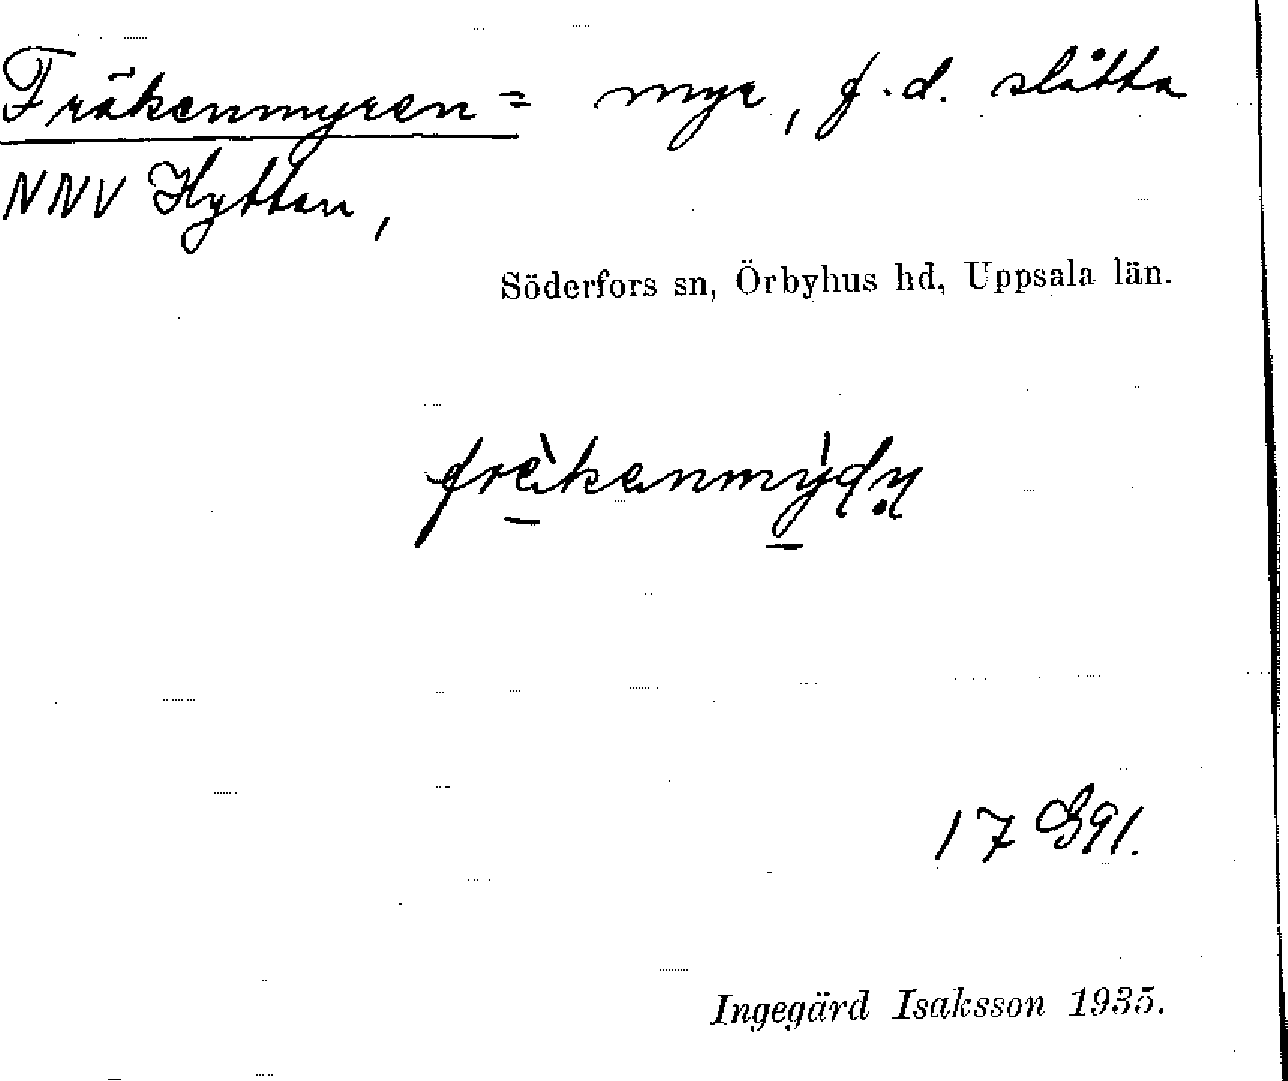 Fräkenmyren = myr, f.d. slåtta
NNV Hyttan,
Söderfors sn, Örbyhus hd, Uppsala län.
17 G91.
Ingegärd Isaksson 1935.